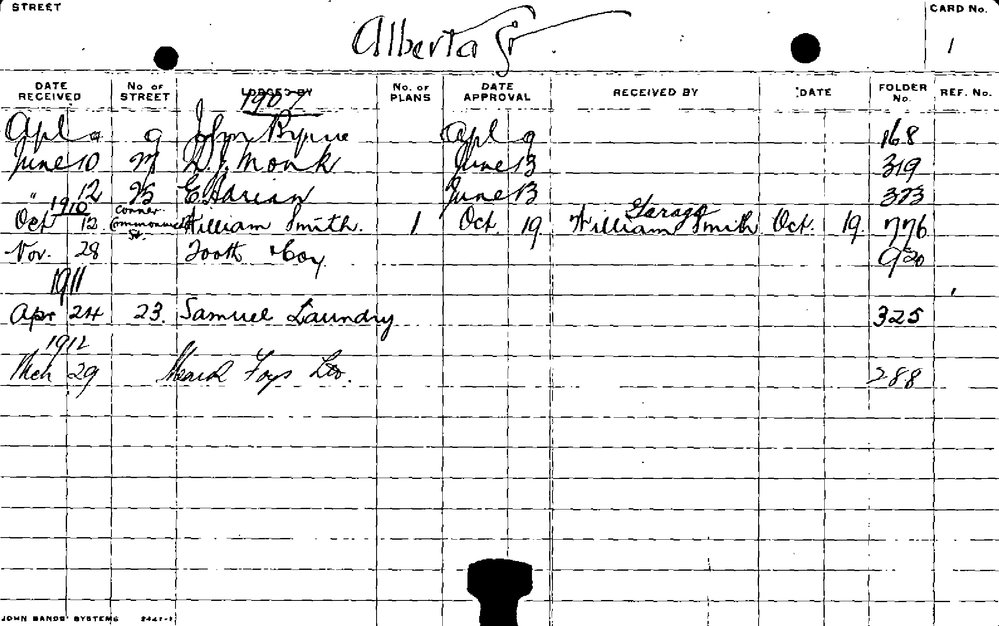 STREET
Alberta St.
CARD No.
1
DATE RECEIVED No. OF STREET LODGED BY No. OF PLANS DATE APPROVAL RECEIVED BY DATE FOLDER No. REF. No.
1907
Apl 9 9 John Byrne Apl 9 168
June 10 D. J. Monk June 13 319
" 12 25 E. June 13 373
1910
Oct 12 Corner Commonwealth St. William Smith. 1 Oct. 19 Garage William Smith Oct. 19. 776
Nov. 28 Tooth & Coy. 920
1911
Apr 24 23. Samuel Laundry 325
1912
Mch 29 Mark Foys Ltd. 288
JOHN SANDS' SYSTEMS 2441-1